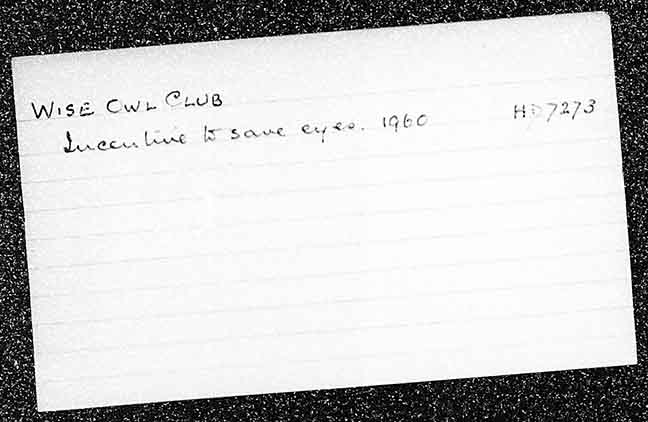 WISE OWL CLUB
Incentive to save eyes. 1960 HD7273